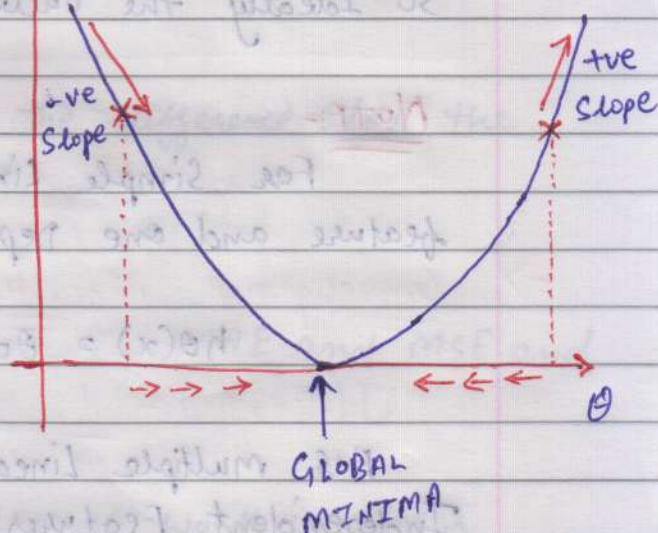 -ve
Slope
+ve
Slope
θ
GLOBAL
MINIMA